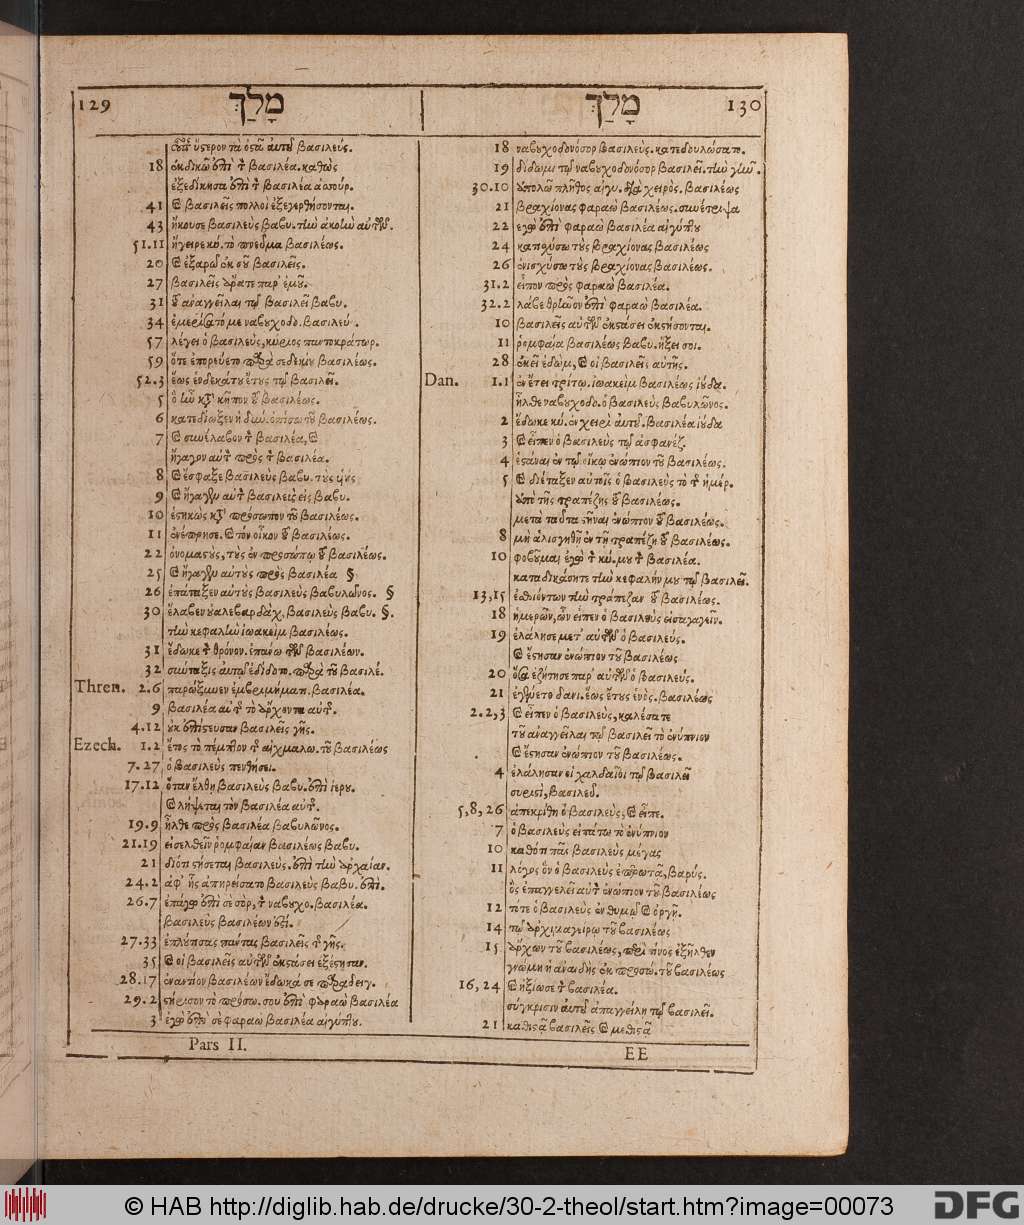 129 מָלַךְ
ὕστερον τὰ ὀστᾶ αὐτοῦ βασιλεύς.
18 ἐκδικῶ ἐπὶ τ̀ βασιλέα. καθὼς
ἐξεδίκησα ἐπὶ τ̀ βασιλέα ἀσσούρ.
41 καὶ βασιλεῖς πολλοὶ ἐξεγερθήσονται.
43 ἤκουσε βασιλεὺς βαβυ. τὴν ἀκοὴν αὐτῶν.
51.11 ἤγειρε κύ. τὸ πνεῦμα βασιλέως.
20 καὶ ἐξαρῶ ἐκ σοῦ βασιλεῖς.
27 βασιλεῖς ἄρατε παρ' ἐμοῦ.
31 τοῦ ἀναγγεῖλαι τῷ βασιλεῖ βαβυ.
34 ἐμερίσατό με ναβουχοδο. βασιλεύ.
57 λέγει ὁ βασιλεὺς, κύριος παντοκράτωρ.
59 ὅτε ἐπορεύετο παρὰ σεδεκίου βασιλέως.
52.3 ἕως ἑνδεκάτου ἔτους τῷ βασιλεῖ.
5 ὃ ἦν κατὰ κῆπον τοῦ βασιλέως.
6 κατεδίωξεν ἡ δύν. ὀπίσω τοῦ βασιλέως.
7 καὶ συνέλαβον τ̀ βασιλέα, καὶ
ἤγαγον αὐτ̀ πρὸς τ̀ βασιλέα.
8 καὶ ἔσφαξε βασιλεὺς βαβυ. τοὺς υἱοὺς
9 καὶ ἤγαγεν αὐτ̀ βασιλεὺς εἰς βαβυ.
10 ἑστηκὼς κατὰ πρόσωπον τοῦ βασιλέως.
11 ἐνέπρησε. καὶ τὸν οἶκον τοῦ βασιλέως.
22 ὀνομαστοὺς, τοὺς ἐν προσώπῳ τοῦ βασιλέως.
25 καὶ ἤγαγεν αὐτοὺς πρὸς βασιλέα §
26 ἐπάταξεν αὐτοὺς βασιλεὺς βαβυλῶνος. §
30 ἔλαβεν οὐαλεμαρδὰχ, βασιλεὺς βαβυ. §.
τὴν κεφαλὴν ἰωακεὶμ βασιλέως.
31 ἔδωκε τ̀ θρόνον. ἐπάνω τῶν βασιλέων.
32 σύνταξις αὐτῷ ἐδίδοτο. παρὰ τοῦ βασιλέ.
Thren. 2.6 παρώξυνεν ἐμβριμήματι. βασιλέα.
9 βασιλέα αὐτ̀ τὸ ἄρχοντα αὐτ̀.
4.12 οὐκ ἐπίστευσαν βασιλεῖς γῆς.
Ezech. 1.2 ἔτος τὸ πέμπτον τ̀ αἰχμαλω. τοῦ βασιλέως
7.27 ὁ βασιλεὺς πενθήσει.
17.12 ὅταν ἔλθῃ βασιλεὺς βαβυ. ἐπὶ ἱερου.
καὶ λήψεται τὸν βασιλέα αὐτ̀.
19.9 ἦλθε πρὸς βασιλέα βαβυλῶνος.
21.19 εἰσελθεῖν ῥομφαίαν βασιλέως βαβυ.
21 διότι στήσεται βασιλεὺς. ἐπὶ τὴν ἀρχαίαν.
24.2 ἀφ' ἧς ἀπηρείσατο βασιλεὺς βαβυ. ἐπὶ.
26.7 ἐπάγω ἐπὶ σὲ σὸρ, τ̀ ναβουχο. βασιλέα.
βασιλεὺς βασιλέων ἐστί.
27.33 ἐπλούτησας πάντας βασιλεῖς τ̀ γῆς.
35 καὶ οἱ βασιλεῖς αὐτῶν ἐκστάσει ἐξέστησαν.
28.17 ἐναντίον βασιλέων ἔδωκά σε παραδειγ.
29.2 στήρισον τὸ πρόσω. σου ἐπὶ φαραὼ βασιλέα
3 ἐγὼ ἐπὶ σὲ φαραὼ βασιλέα αἰγύπτου.
Pars II.
מָלַךְ 130
18 ναβουχοδονόσορ βασιλεὺς. κατεδουλώσατο.
19 δίδωμι τῷ ναβουχοδονόσορ βασιλεῖ. τὴν γῆν.
30.10 ἀπολῶ πλῆθος αἰγυ. διὰ χειρὸς. βασιλέως
21 βραχίονας φαραὼ βασιλέως. συνέτριψα
22 ἐγὼ ἐπὶ φαραὼ βασιλέα αἰγύπτου
24 κατισχύσω τοὺς βραχίονας βασιλέως
26 ἐνισχύσω τοὺς βραχίονας βασιλέως.
31.2 εἶπον πρὸς φαραὼ βασιλέα.
32.2 λάβε θρῆνον ἐπὶ φαραὼ βασιλέα.
10 βασιλεῖς αὐτῶν ἐκστάσει ἐκστήσονται.
11 ῥομφαία βασιλέως βαβυ. ἥξει σοι.
28 ἐκεῖ ἐδὼμ, καὶ οἱ βασιλεῖς αὐτῆς.
Dan. 1.1 ἐν ἔτει τρίτῳ. ἰωακεὶμ βασιλέως ἰούδα.
ἦλθε ναβουχοδο. ὁ βασιλεὺς βαβυλῶνος.
2 ἔδωκε κύ. ἐν χειρὶ αὐτοῦ. βασιλέα ἰούδα
3 καὶ εἶπεν ὁ βασιλεὺς τῷ ἀσφανέζ.
4 ἑστάναι ἐν τῷ οἴκῳ ἐνώπιον τοῦ βασιλέως.
5 καὶ διέταξεν αὐτοῖς ὁ βασιλεὺς τὸ τ̀ ἡμέρ.
ἀπὸ τῆς τραπέζης τοῦ βασιλέως.
μετὰ ταῦτα στῆναι ἐνώπιον τοῦ βασιλέως.
8 μὴ ἀλισγηθῇ ἐν τῇ τραπέζῃ τοῦ βασιλέως.
10 φοβοῦμαι ἐγὼ τ̀ κύ. μου τ̀ βασιλέα.
καταδικάσητε τὴν κεφαλήν μου τῷ βασιλεῖ.
13,15 ἐσθιόντων τὴν τράπεζαν τοῦ βασιλέως.
18 ἡμερῶν, ὧν εἶπεν ὁ βασιλεὺς εἰσαγαγεῖν.
19 ἐλάλησε μετ' αὐτῶν ὁ βασιλεύς.
καὶ ἔστησαν ἐνώπιον τοῦ βασιλέως
20 ὅσα ἐζήτησε παρ' αὐτῶν ὁ βασιλεύς.
21 ἐγένετο δανι. ἕως ἔτους ἑνὸς. βασιλέως
2.2,3 καὶ εἶπεν ὁ βασιλεὺς, καλέσατε
τοῦ ἀναγγεῖλαι τῷ βασιλεῖ τὸ ἐνύπνιον
καὶ ἔστησαν ἐνώπιον τοῦ βασιλέως.
4 ἐλάλησαν οἱ χαλδαῖοι τῷ βασιλεῖ
συριστὶ, βασιλεῦ.
5,8,26 ἀπεκρίθη ὁ βασιλεὺς, καὶ εἶπε.
7 ὁ βασιλεὺς εἰπάτω τὸ ἐνύπνιον
10 καθότι πᾶς βασιλεὺς μέγας
11 λόγος ὃν ὁ βασιλεὺς ἐπερωτᾷ, βαρύς.
ὃς ἐπαγγελεῖ αὐτ̀ ἐνώπιον τοῦ βασιλέως
12 τότε ὁ βασιλεὺς ἐν θυμῷ καὶ ὀργῇ.
14 τῷ ἀρχιμαγείρῳ τοῦ βασιλέως
15 ἄρχων τοῦ βασιλέως, περὶ τίνος ἐξῆλθεν
γνώμη ἡ ἀναιδὴς ἐκ προσώ. τοῦ βασιλέως
16,24 καὶ ἠξίωσε τ̀ βασιλέα.
σύγκρισιν αὐτοῦ ἀπαγγείλῃ τῷ βασιλεῖ.
21 καθιστᾷ βασιλεῖς καὶ μεθιστᾷ
EE
© HAB http://diglib.hab.de/drucke/30-2-theol/start.htm?image=00073
DFG